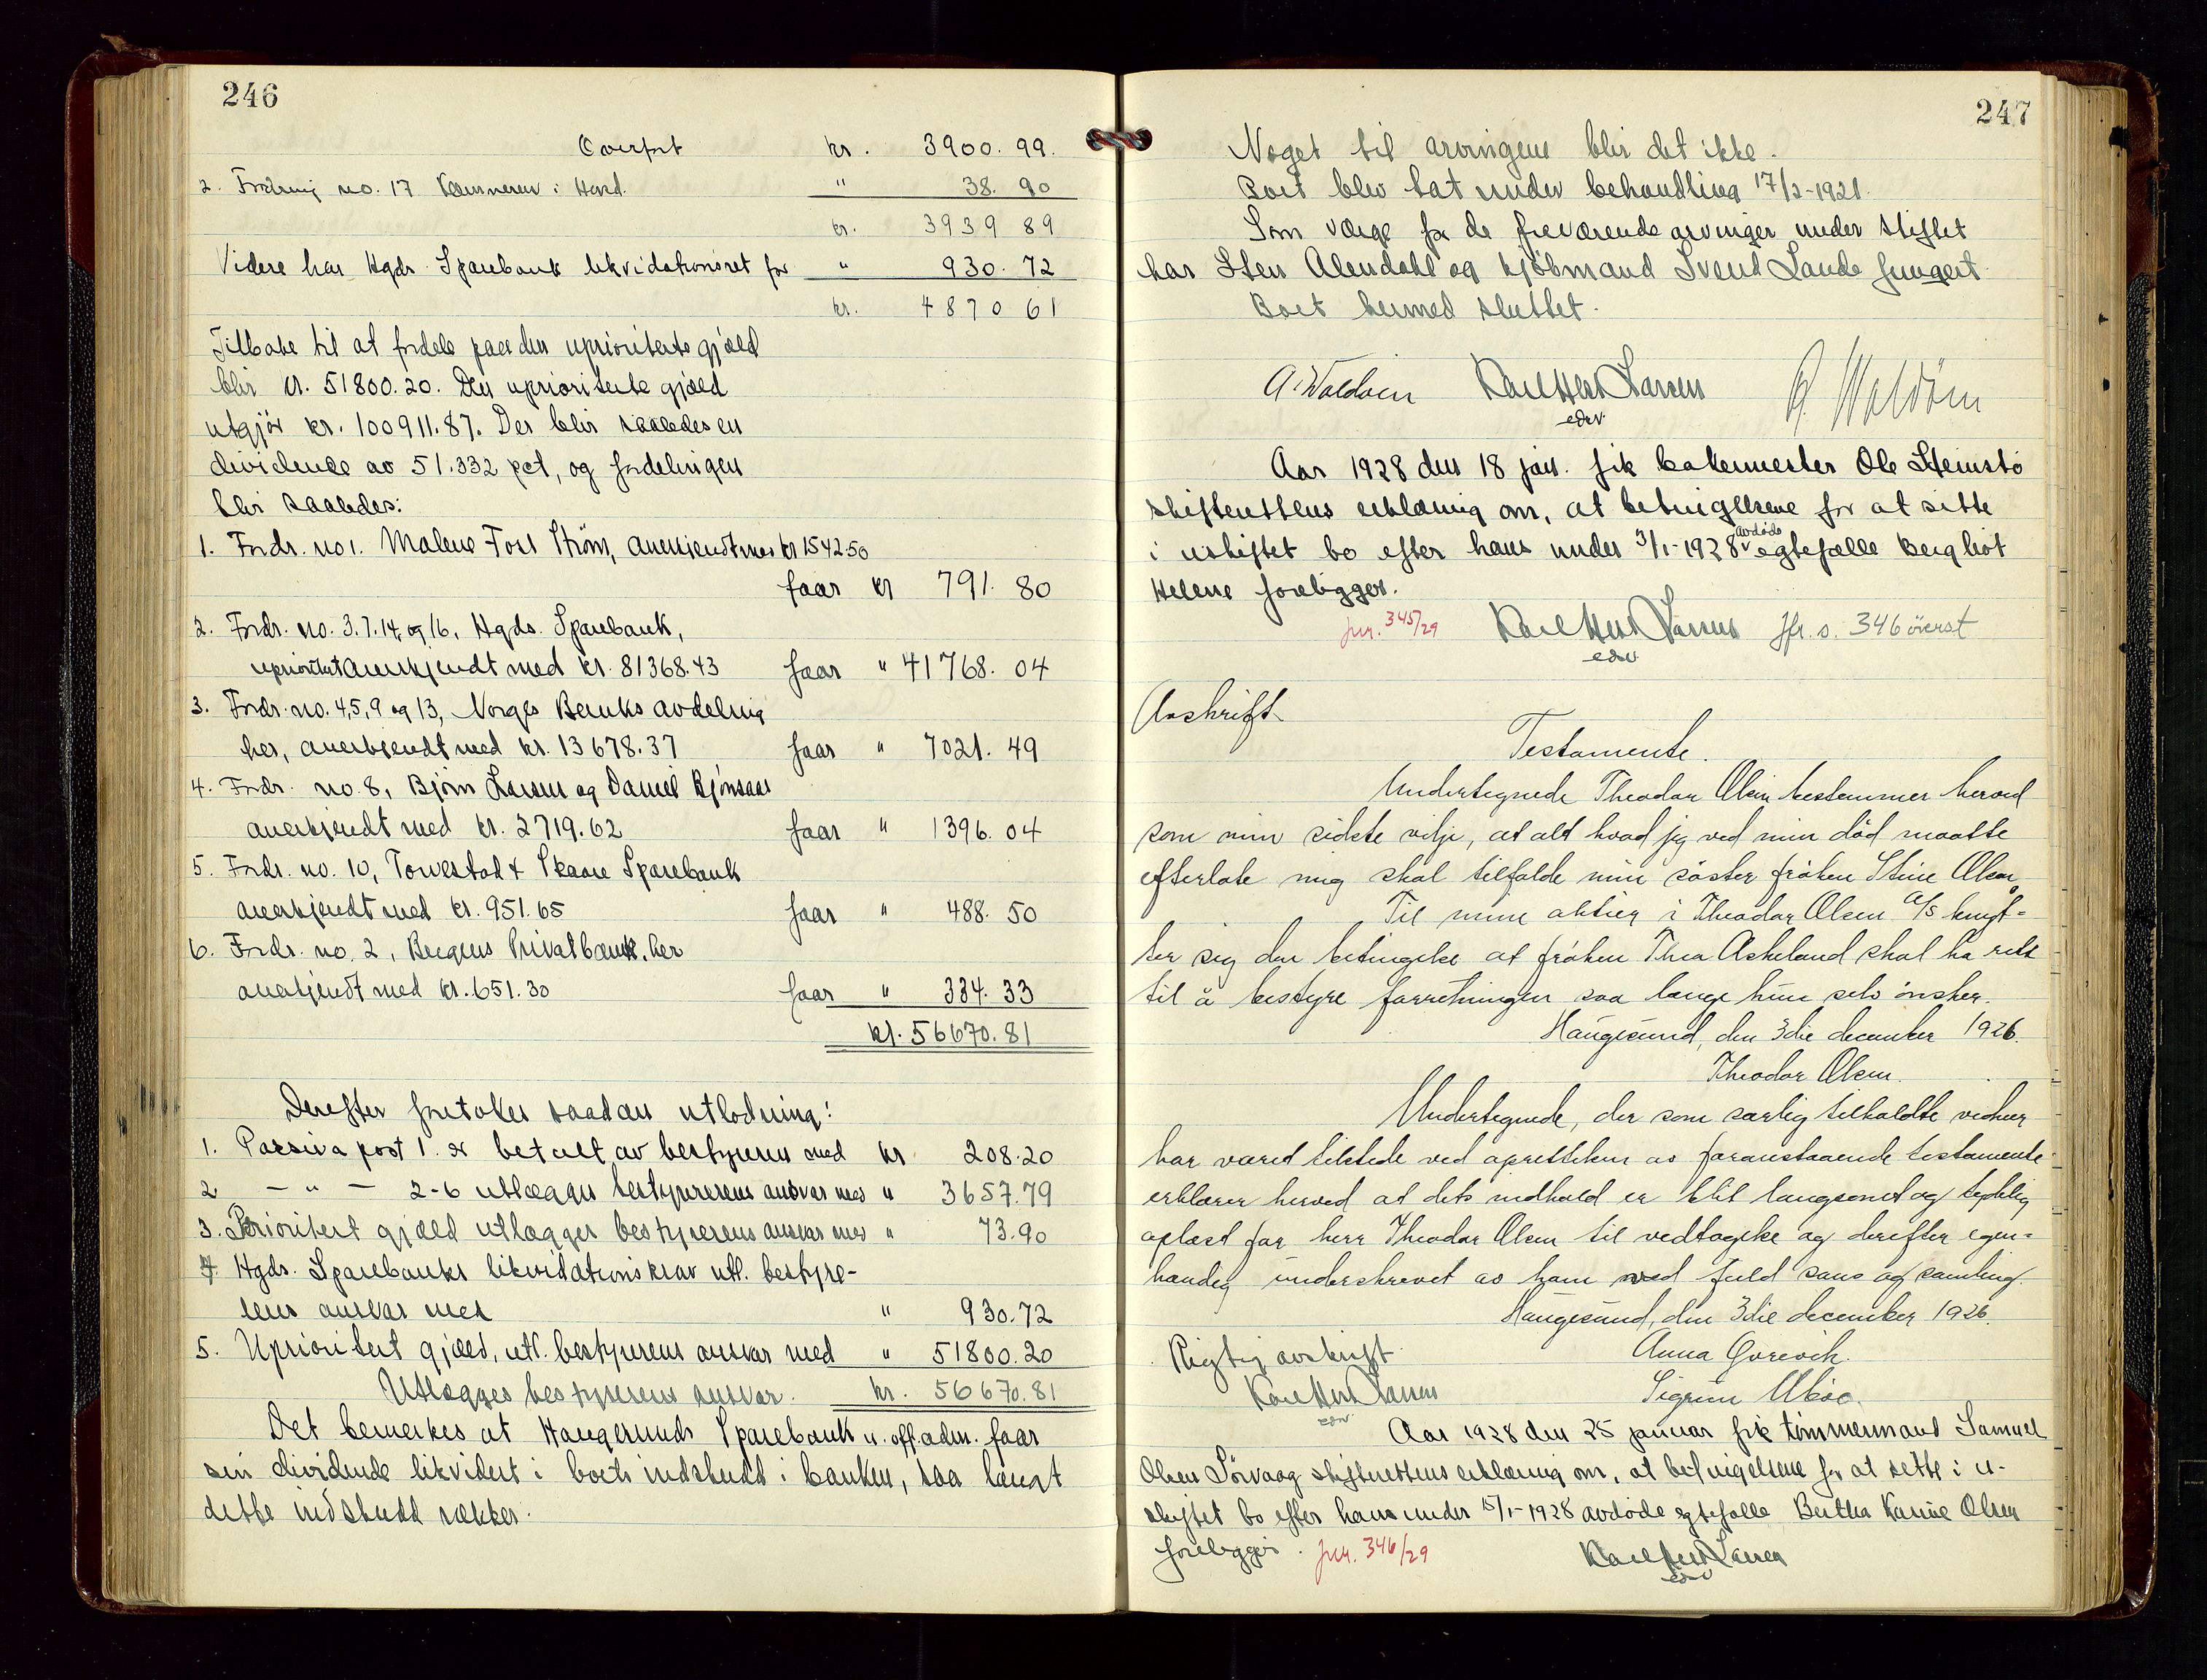 246
Overført kr. 3900.99.
2. Fordring no. 17 Kæmneren i Haud. " 38.90
kr. 3939 89
Videre har Hgds. Sparebank likvidationsret for " 930.72
kr. 4870 61
Tilbake til at fordele paa den uprioriterte gjæld
blir kr. 51800.20. Den uprioriterte gjæld
utgjör kr. 100911.87. Der blir saaledes en
dividende av 51.332 pct, og fordelingen
blir saaledes:
1. Fordr. no 1. Malene Foss Ström, anerkjendt med kr 1542.50
faar kr 791.80
2. Fordr. no. 3.7.14, og 16, Hgds. Sparebank,
uprioritert anerkjendt med kr. 81368.43 faar " 41768.04
3. Fordr. no. 4,5,9 og 13, Norges Banks avdeling
her, anerkjendt med kr. 13678.37 faar " 7021.49
4. Fordr. no. 8, Björn Larsen og Daniel
anerkjendt med kr. 2719.62 faar " 1396.04
5. Fordr. no. 10, Torvestad & Skaare Sparebank
anerkjendt med kr. 951.65 faar " 488.50
6. Fordr. no. 2, Bergens Privatbank, her
anerkjendt med kr. 651.30 faar " 334.33
kr. 56670.81
Derefter foretokes saadan utlodning:
1. Passiva post 1. er betalt av bestyreren med kr 208.20
2 — " — 2-6 utlægges bestyrerens ansvar med " 3657.79
3. Prioritert gjæld utlægges bestyrerens ansvar med " 73.90
4. Hgds. Sparebanks likvidationskrav utl. bestyre-
rens ansvar med " 930.72
5. Uprioritert gjæld, utl. bestyrerens ansvar med " 51800.20
Utlægges bestyrerens ansvar. kr. 56670.81
Det bemerkes at Haugesunds Sparebank u. off. adm. faar
sin dividende likvidert i boets indskudd i banken, saa langt
dette indskudd rækker.
247
Noget til arvingene blir det ikke.
Boet blev tat under behandling 17/2-1921.
Som værge for de fraværende arvinger under skiftet
har Sten Alendahl og kjöbmand Svend Lande fungert.
Boet hermed sluttet.
A. Waldvein Karl Herb Larsen
edv
Aar 1928 den 18 jan. fik bakermester Ole Steinstö
skifterettens erklæring om, at betingelsene for at sitte
i uskiftet bo efter hans under 3/1-1928 avdöde egtefælle Bergliot
Helene foreligger.
jur. 345/29 Karl Herb Larsen jfr. s. 346 överst
edv
Avskrift
Testamente.
Undertegnede Theodor Olsen bestemmer herved
som min sidste vilje, at alt hvad jeg ved min död maatte
efterlate mig skal tilfalde min söster fröken Stine Olsen
Til mine aktier i Theodor Olsen A/S knyt-
ter sig den betingelse at fröken Thea Askeland skal ha rett
til å bestyre forretningen saa lenge hun selv önsker.
Haugesund, den 3die december 1926.
Theodor Olsen.
Undertegnede, der som særlig tilkaldte vidner
har været tilstede ved oprettelsen av foranstaaende testamente
erklærer herved at dets indhold er blit langsomt og tydelig
oplæst for herr Theodor Olsen til vedtagelse og derefter egen-
hændig underskrevet av ham ved fuld sans og samling.
Haugesund, den 3die december 1926.
Rigtig avskrift. Anna
Karl Herb Larsen Sigrun
edv
Aar 1928 den 25 januar fik tömmermand Samuel
Olsen Sörvaag skifterettens erklæring om, at betingelsene for at sitte i u-
skiftet bo efter hans under 15/1-1928 avdöde egtefælle Bertha Karine Olsen
foreligger. jur. 346/29 Karl Herb Larsen
edv